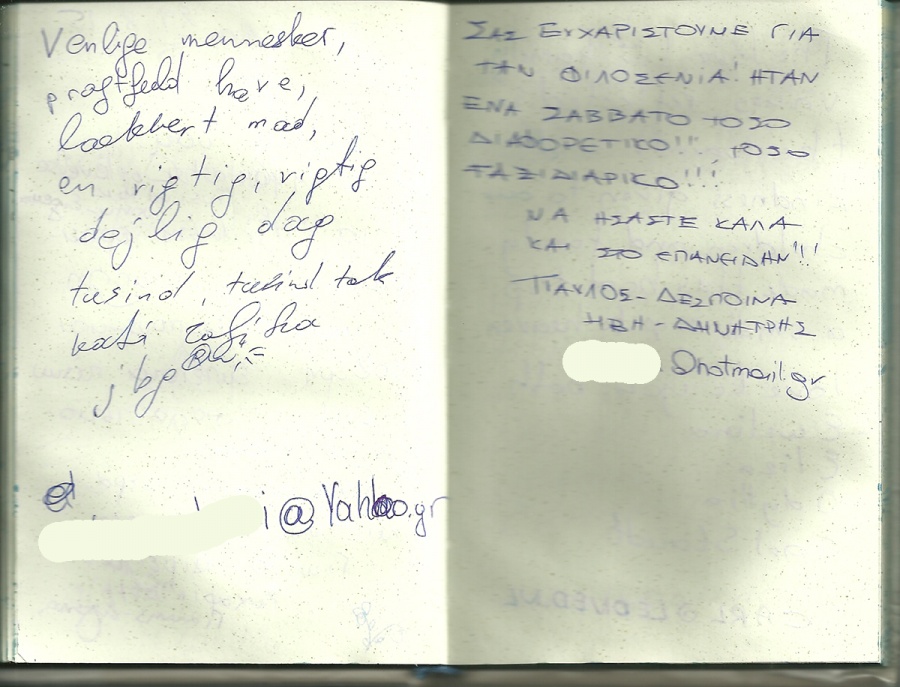 Venlige mennesker,
pragtfuld have,
laekkert mad,
en rigtig, rigtig
dejlig dag
tusind, tusind tak
i@Yahoo.gr
ΣΑΣ ΕΥΧΑΡΙΣΤΟΥΜΕ ΓΙΑ
ΤΗΝ ΦΙΛΟΞΕΝΙΑ! ΗΤΑΝ
ΕΝΑ ΣΑΒΒΑΤΟ ΤΟΣΟ
ΔΙΑΦΟΡΕΤΙΚΟ!! ΤΟΣΟ
ΤΑΞΙΔΙΑΡΙΚΟ!!!
ΝΑ ΗΣΑΣΤΕ ΚΑΛΑ
ΚΑΙ ΣΤΟ ΕΠΑΝΕΙΔΗΝ!!!
ΠΑΥΛΟΣ-ΔΕΣΠΟΙΝΑ
ΗΒΗ-ΔΗΜΗΤΡΗΣ
@hotmail.gr